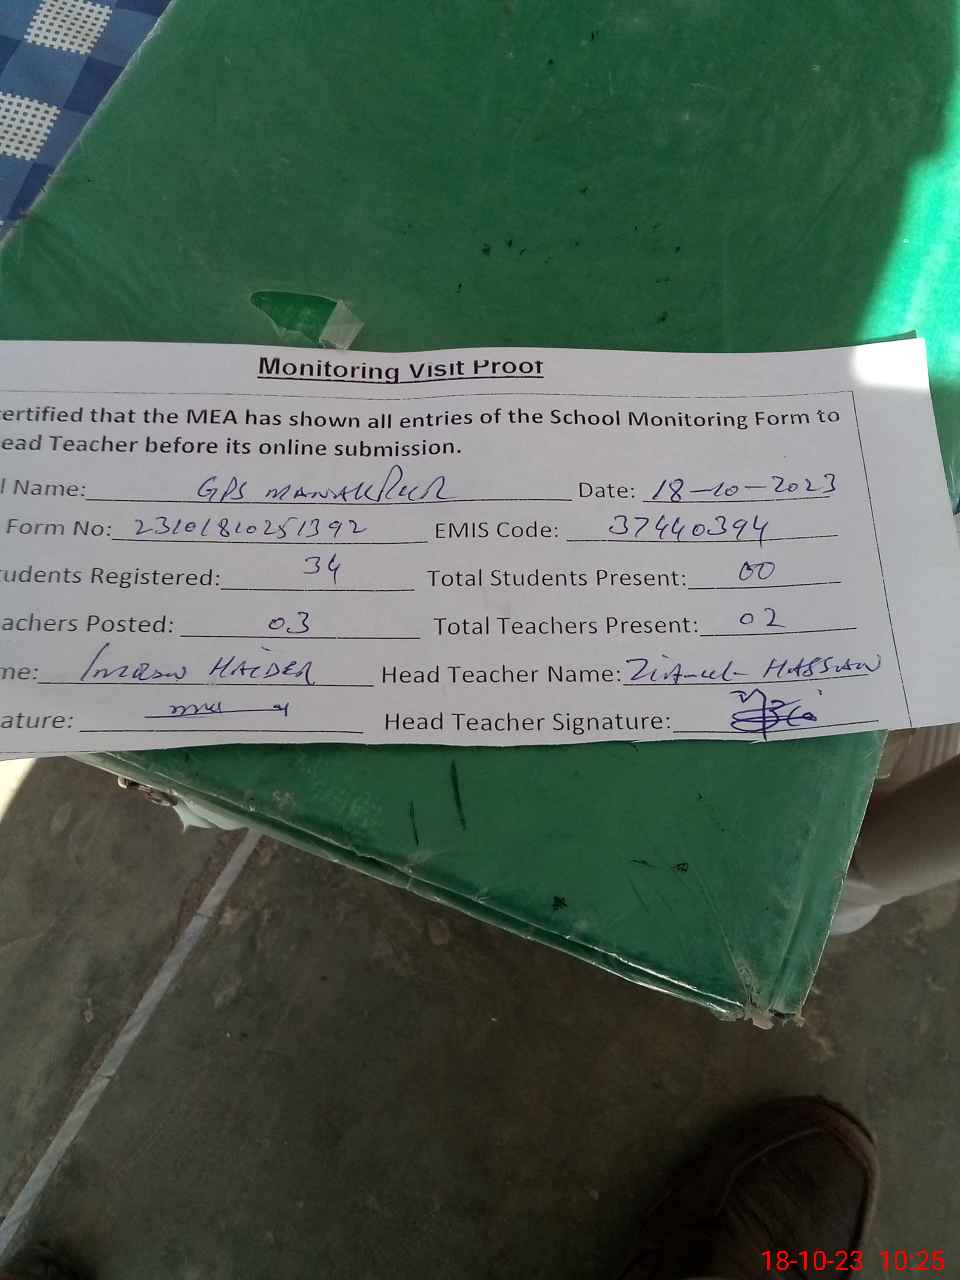 Monitoring Visit Proof
ertified that the MEA has shown all entries of the School Monitoring Form to
ead Teacher before its online submission.
l Name: GPS MANAKPUR Date: 18-10-2023
Form No: 23101810251392 EMIS Code: 37440394
udents Registered: 34 Total Students Present: 00
achers Posted: 03 Total Teachers Present: 02
me: Imran HAIDER Head Teacher Name: HASSAN
ature: Head Teacher Signature:
18-10-23 10:25